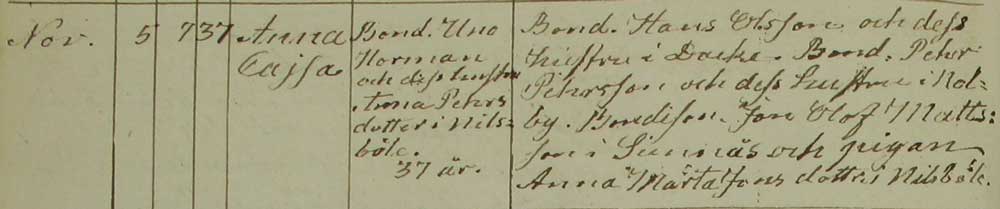 Nov. 5 7 37 Anna Cajsa
Bond. Uno
Norman
och dess hustru
Anna Pehrs
dotter i Nils=
böle.
37 år.
Bond. Hans Olsson och dess
hustru i Backe. Bond. Pehr
Pehrsson och dess hustru i Nol=
by. Bondeson. Jon Olof Matts=
son i Sunnäs och pigan
Anna Märta Jons dotter i Nilsböle.